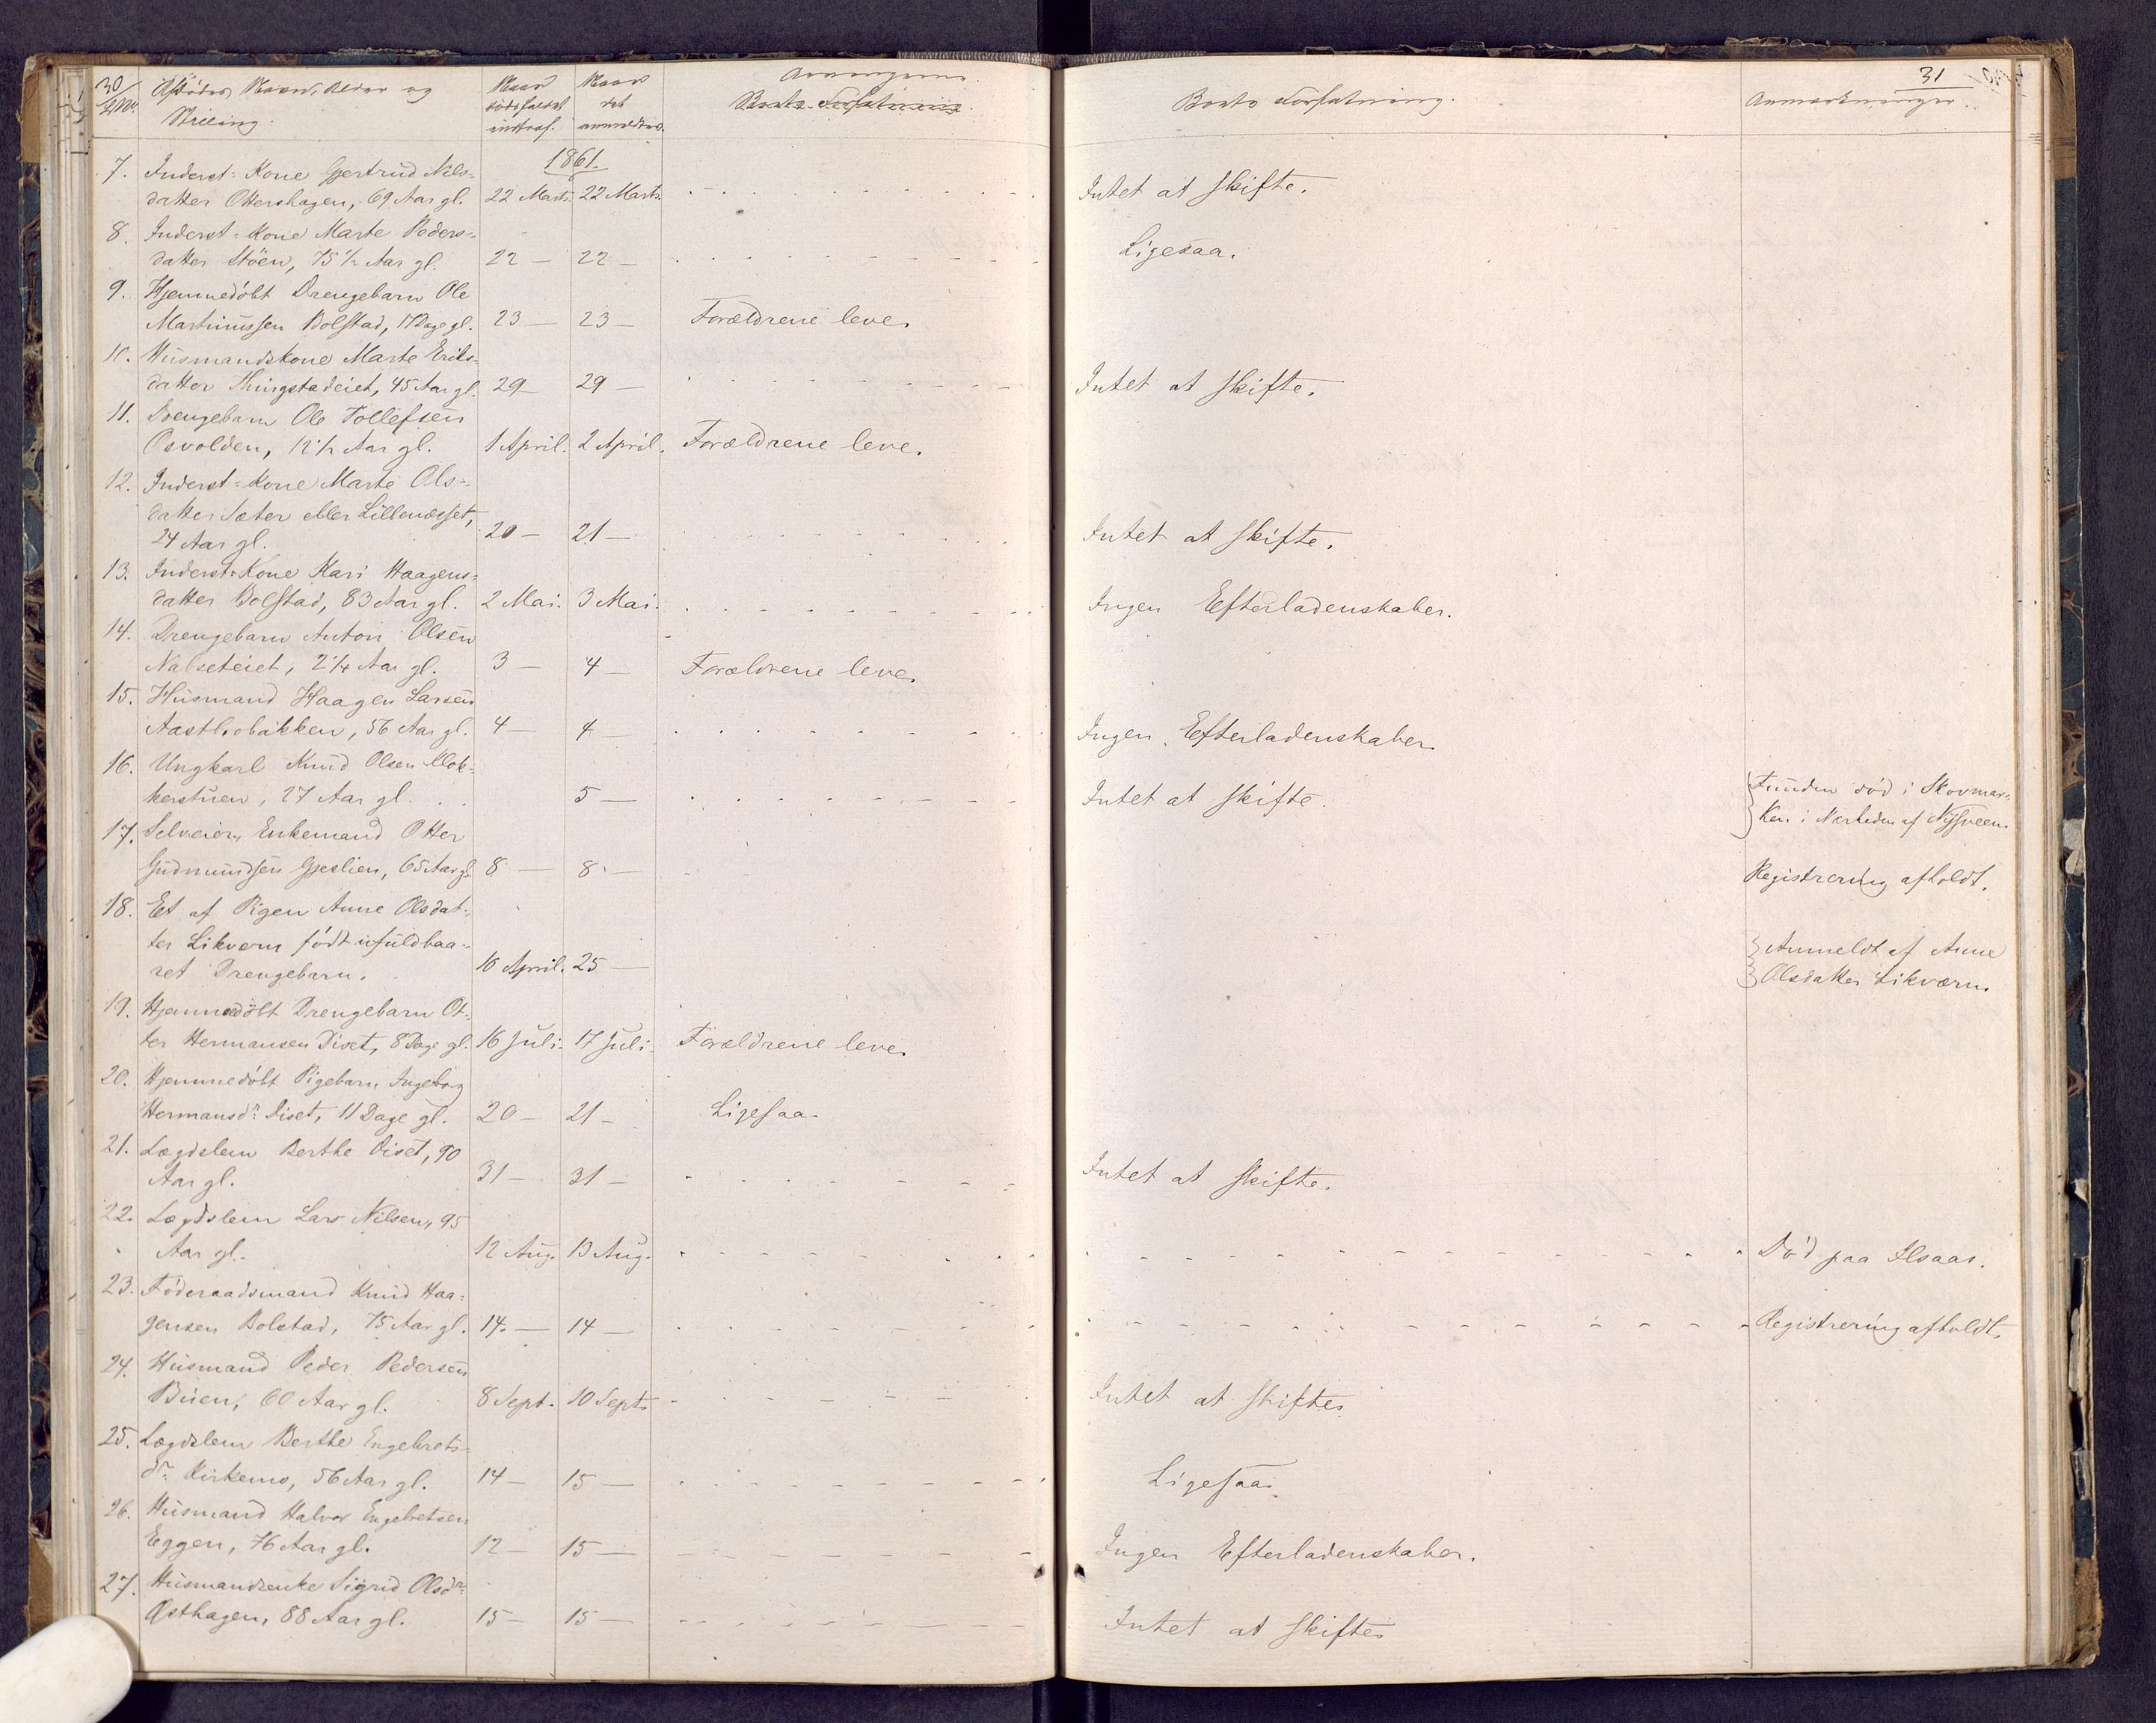 30
31
Afdødes Navn, Alder og
Stilling.
Naar
dødsfaldet
indtraf.
Naar
det
anmeldtes.
Arvingerne.
Boets Forfatning.
Boets Forfatning.
Anmærkninger.
1861.
7. Inderst-Kone Gjertrud Nils-
datter Ottershagen, 69 Aar gl. 22 Marts. 22 Marts. Intet at skifte.
8. Inderst-Kone Marte Peders-
datter Støen, 75 1/2 Aar gl. 22 — 22 — Ligesaa.
9. Hjemmedøbt Drengebarn Ole
Martinussen Bolstad, 17 Dage gl. 23 — 23 — Forældrene leve.
10. Husmandskone Marte Eriks-
datter Thingstadeiet, 45 Aar gl. 29 — 29 — Intet at skifte.
11. Drengebarn Ole Tollefsen
Osvolden, 12 1/2 Aar gl. 1 April. 2 April. Forældrene leve.
12. Inderst-Kone Marte Ols-
datter Sæter eller Lillenæsset,
24 Aar gl. 20 — 21 — Intet at skifte.
13. Inderst-Kone Kari Haagens-
datter Bolstad, 83 Aar gl. 2 Mai. 3 Mai. Ingen Efterladenskaber.
14. Drengebarn Anton Olsen
Nabseteiet, 2 1/4 Aar gl. 3 — 4 — Forældrene leve.
15. Husmand Haagen Larsen
Aastliebakken, 56 Aar gl. 4 — 4 — Ingen Efterladenskaber.
16. Ungkarl Knud Olsen Klok-
kerstuen, 27 Aar gl. 5 — Intet at skifte. Funden død i Skovmar-
ken i Nærheden af Nysveen.
17. Selveier, Enkemand Otter
Gudmundsen Gjeslien, 65 Aar gl. 8 — 8 — Registrering afholdt.
18. Et af Pigen Anne Olsdat-
ter Likværn født ufuldbaa-
ret Drengebarn. 10 April. 25 — Anmeldt af Anne
Olsdatter Likværn.
19. Hjemmedøbt Drengebarn Ot-
ter Hermansen Diset, 8 Dage gl. 16 Juli. 17 Juli. Forældrene leve.
20. Hjemmedøbt Pigebarn Ingeborg
Hermansdr. Diset, 11 Dage gl. 20 — 21 — Ligesaa.
21. Lægdslem Berthe Diset, 90
Aar gl. 31 — 31 — Intet at skifte.
22. Lægdslem Lars Nilsen, 95
Aar gl. 12 Aug. 13 Aug. Død paa Ilsaas.
23. Føderaadsmand Knud Haa-
gensen Bolstad, 75 Aar gl. 14. — 14 — Registrering afholdt.
24. Husmand Peder Pedersen
Buen, 60 Aar gl. 8 Sept. 10 Sept. Intet at skifte.
25. Lægdslem Berthe Engebrets-
dr. Kirkemo, 56 Aar gl. 14 — 15 — Ligesaa.
26. Husmand Halvor Engebretsen
Eggen, 76 Aar gl. 12 — 15 — Ingen Efterladenskaber.
27. Husmandsenke Sigrid Olsdr.
Østhagen, 88 Aar gl. 15 — 15 — Intet at skifte.